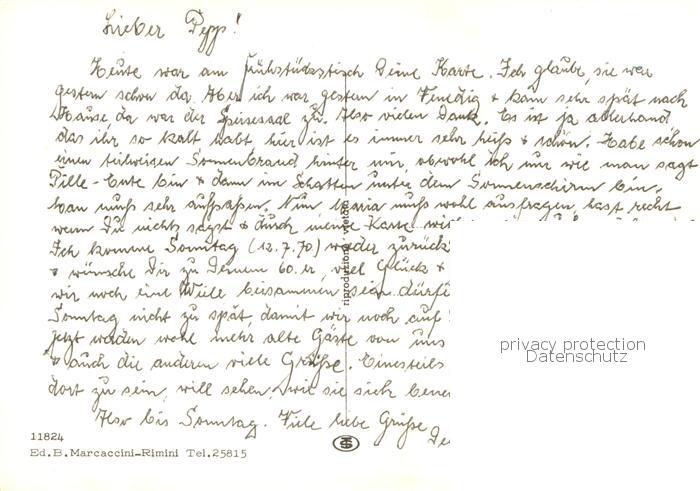 Lieber Pepp!
Heute war am Frühstückstisch Deine Karte. Ich glaube, sie war
gestern schon da. Aber ich war gestern in Venedig & kam sehr spät nach
Hause, da war der Speisesaal zu. Also vielen Dank. Es ist ja allerhand
das ihr so kalt habt, hier ist es immer sehr heiß & schön. Habe schon
einen teilweisen Sonnenbrand hinter mir, obwohl ich nur wie man sagt
Pille-Pute bin & dann im Schatten unter dem Sonnenschirm bin.
Man muß sehr aufpassen. Nun Maria muß wohl ausfragen, hast recht
wenn Du nichts sagst & durch meine Karte
Ich komme Sonntag (12.7.70) wieder zurück
& wünsche Dir zu Deinem 60.er, viel Glück &
wir noch eine Weile beisammen sein
Sonntag nicht zu spät, damit wir noch auf
jetzt werden wohl mehr alte Gäste von uns
& auch die anderen viele Grüße. Einesteils
dort zu sein, will sehen, wie sie sich
Also bis Sonntag. Viele liebe Grüße
riproduzione vietata
privacy protection
Datenschutz
11824
Ed. B. Marcaccini-Rimini Tel. 25815